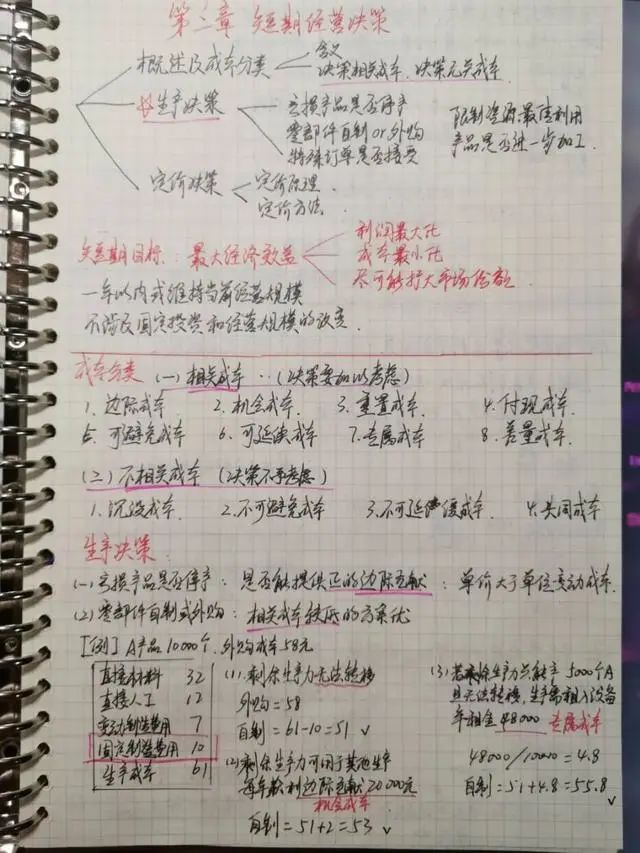 第三章 短期经营决策
概述及成本分类
含义
决策相关成本、决策无关成本
☆生产决策
亏损产品是否停产
零部件自制 or 外购
特殊订单是否接受
限制资源最佳利用
产品是否进一步加工.
定价决策
定价原理.
定价方法.
短期目标: 最大经济效益
利润最大化
成本最小化
尽可能扩大市场份额.
一年以内或维持当前经营规模
不涉及固定投资和经营规模的改变.
成本分类 (一) 相关成本 (决策要加以考虑)
1. 边际成本 2. 机会成本. 3. 重置成本. 4. 付现成本.
5. 可避免成本 6. 可延缓成本 7. 专属成本 8. 差量成本.
(二) 不相关成本 (决策不予考虑)
1. 沉没成本. 2. 不可避免成本 3. 不可延缓成本. 4. 共同成本
生产决策:
(一) 亏损产品是否停产: 是否能提供正的边际贡献: 单价大于单位变动成本.
(2) 零部件自制或外购: 相关成本较低的方案优
[例] A产品10000个. 外购成本58元
直接材料 32
直接人工 12
变动制造费用 7
固定制造费用 10
生产成本 61
(1) 剩余生产力无法转移
外购=58
自制=61-10=51 √
(2) 剩余生产力可用于其他生产
每年获利边际贡献20000元
机会成本
自制=51+2=53 √
(3) 若剩余生产力只能产5000个A
且无法转移, 生产需租入设备
年租金48000 专属成本
48000/10000=4.8
自制=51+4.8=55.8
√